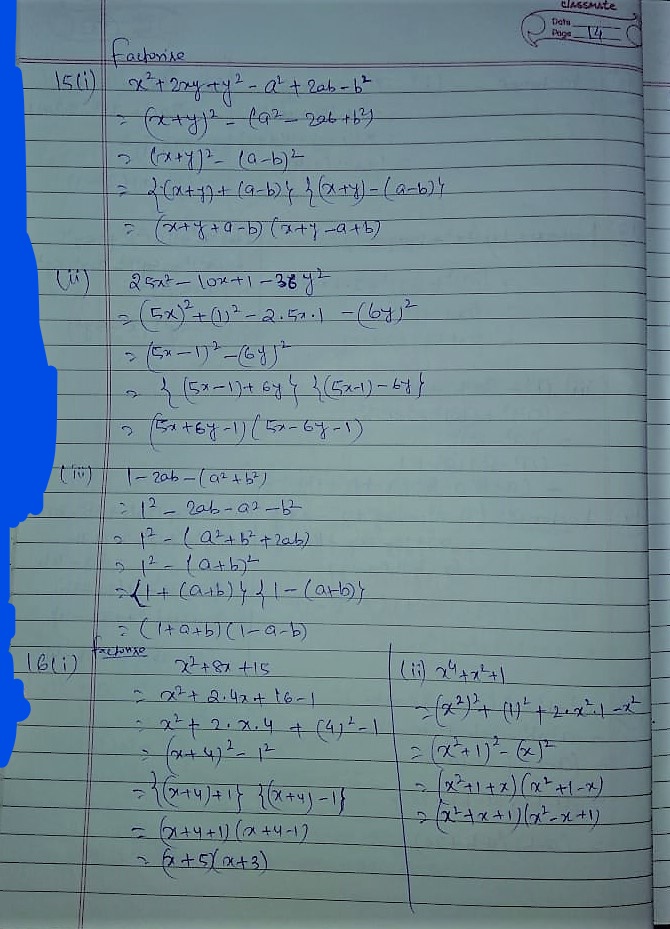 classmate
Date
Page 14
Factorise
15(i) x² + 2xy + y² - a² + 2ab - b²
= (x+y)² - (a² - 2ab + b²)
= (x+y)² - (a-b)²
= {(x+y) + (a-b)} {(x+y) - (a-b)}
= (x+y+a-b) (x+y-a+b)
(ii) 25x² - 10x + 1 - 36y²
= (5x)² + (1)² - 2.5x.1 - (6y)²
= (5x-1)² - (6y)²
= {(5x-1) + 6y} {(5x-1) - 6y}
= (5x+6y-1) (5x-6y-1)
(iii) 1 - 2ab - (a² + b²)
= 1² - 2ab - a² - b²
= 1² - (a² + b² + 2ab)
= 1² - (a+b)²
= {1 + (a+b)} {1 - (a+b)}
= (1+a+b) (1-a-b)
factorise
16(i) x² + 8x + 15
= x² + 2.4x + 16 - 1
= x² + 2.x.4 + (4)² - 1
= (x+4)² - 1²
= {(x+4)+1} {(x+4)-1}
= (x+4+1) (x+4-1)
= (x+5)(x+3)
(ii) x⁴ + x² + 1
= (x²)² + (1)² + 2.x².1 - x²
= (x²+1)² - (x)²
= (x²+1+x) (x²+1-x)
= (x²+x+1) (x²-x+1)